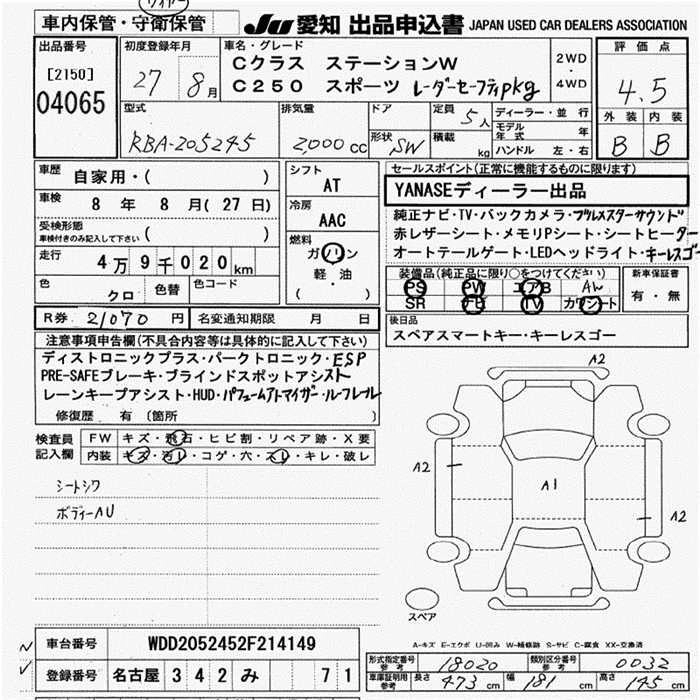 ワイヤー
車内保管・守衛保管
JU 愛知 出品申込書 JAPAN USED CAR DEALERS ASSOCIATION
出品番号 初度登録年月 車名・グレード 評価点
[2150] 27年 8月 Cクラス ステーションW 2WD・4WD 4.5
04065 C250 スポーツ レーダーセーフティpkg
外装 内装
B B
型式 排気量 ドア 定員 5人 ディーラー・並行
RBA-205245 2,000cc 形状 SW 積載 kg モデル年式 年
ハンドル 左・右
車歴 自家用・( ) シフト AT
セールスポイント(正常に機能するものに限ります)
YANASEディーラー出品
車検 8年 8月(27日) 冷房 AAC
純正ナビ・TV・バックカメラ・ブルメスターサウンド
受検形態 車検付きのみ記入して下さい ( )
赤レザーシート・メモリPシート・シートヒーター
走行 4万9千020km 燃料 ガソリン 軽・油 ( )
オートテールゲート・LEDヘッドライト・キーレスゴー
装備品(純正品に限り○をつけてください) 新車保証書
色 クロ 色替 色コード
PS PW エアB AW 有・無
SR ナビ TV カワシート
R券 21070円 名変通知期限 月 日
後日品
スペアスマートキー・キーレスゴー
注意事項申告欄(不具合内容等は具体的に記入して下さい)
ディストロニックプラス・パークトロニック・ESP
PRE-SAFEブレーキ・ブラインドスポットアシスト
レーンキープアシスト・HUD・パフュームアトマイザー・ルーフレール
修復歴 有 (箇所 )
検査員記入欄 FW キズ・飛石・ヒビ割・リペア跡・X要
内装 キズ・汚レ・コゲ・穴・スレ・キレ・破レ
シートシワ
ボディーAU
A2
A2
A1
A2
スペア
A-キズ E-エクボ U-凹み W-補修跡 S-サビ C-腐食 XX-交換済
車台番号 WDD2052452F214149
登録番号 名古屋 342 み 71
形式指定番号 参考 18020 類別区分番号 参考 0032
車庫証明用 参考 長さ 473cm 幅 181cm 高さ 145cm